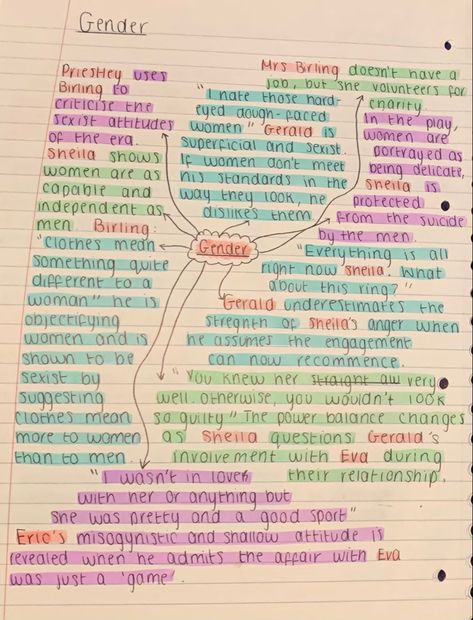 Gender
Priestley uses
Birling to
criticise the
sexist attitudes
of the era.
Sheila shows
women are as
capable and
independent as
men. Birling:
"Clothes mean
something quite
different to a
woman" he is
objectifying
women and is
shown to be
sexist by
suggesting
clothes mean
more to women
than to men.
"I hate those hard-
eyed dough-faced
women" Gerald is
superficial and sexist.
If women don't meet
his standards in the
way they look, he
dislikes them.
Mrs Birling doesn't have a
job, but she volunteers for
charity.
In the play,
women are
portrayed as
being delicate,
Sheila is
protected
from the suicide
by the men.
Gender
"Everything is all
right now Sheila. What
about this ring?"
Gerald underestimates the
stregnth of Sheila's anger when
he assumes the engagement
can now recommence.
"You knew her straight aw very
well. otherwise, you wouldn't look
so guilty" The power balance changes
as Sheila questions Gerald's
involvement with Eva during
their relationship.
"I wasn't in love
with her or anything but
she was pretty and a good sport"
Eric's misogynistic and shallow attitude is
revealed when he admits the affair with Eva
was just a 'game'.